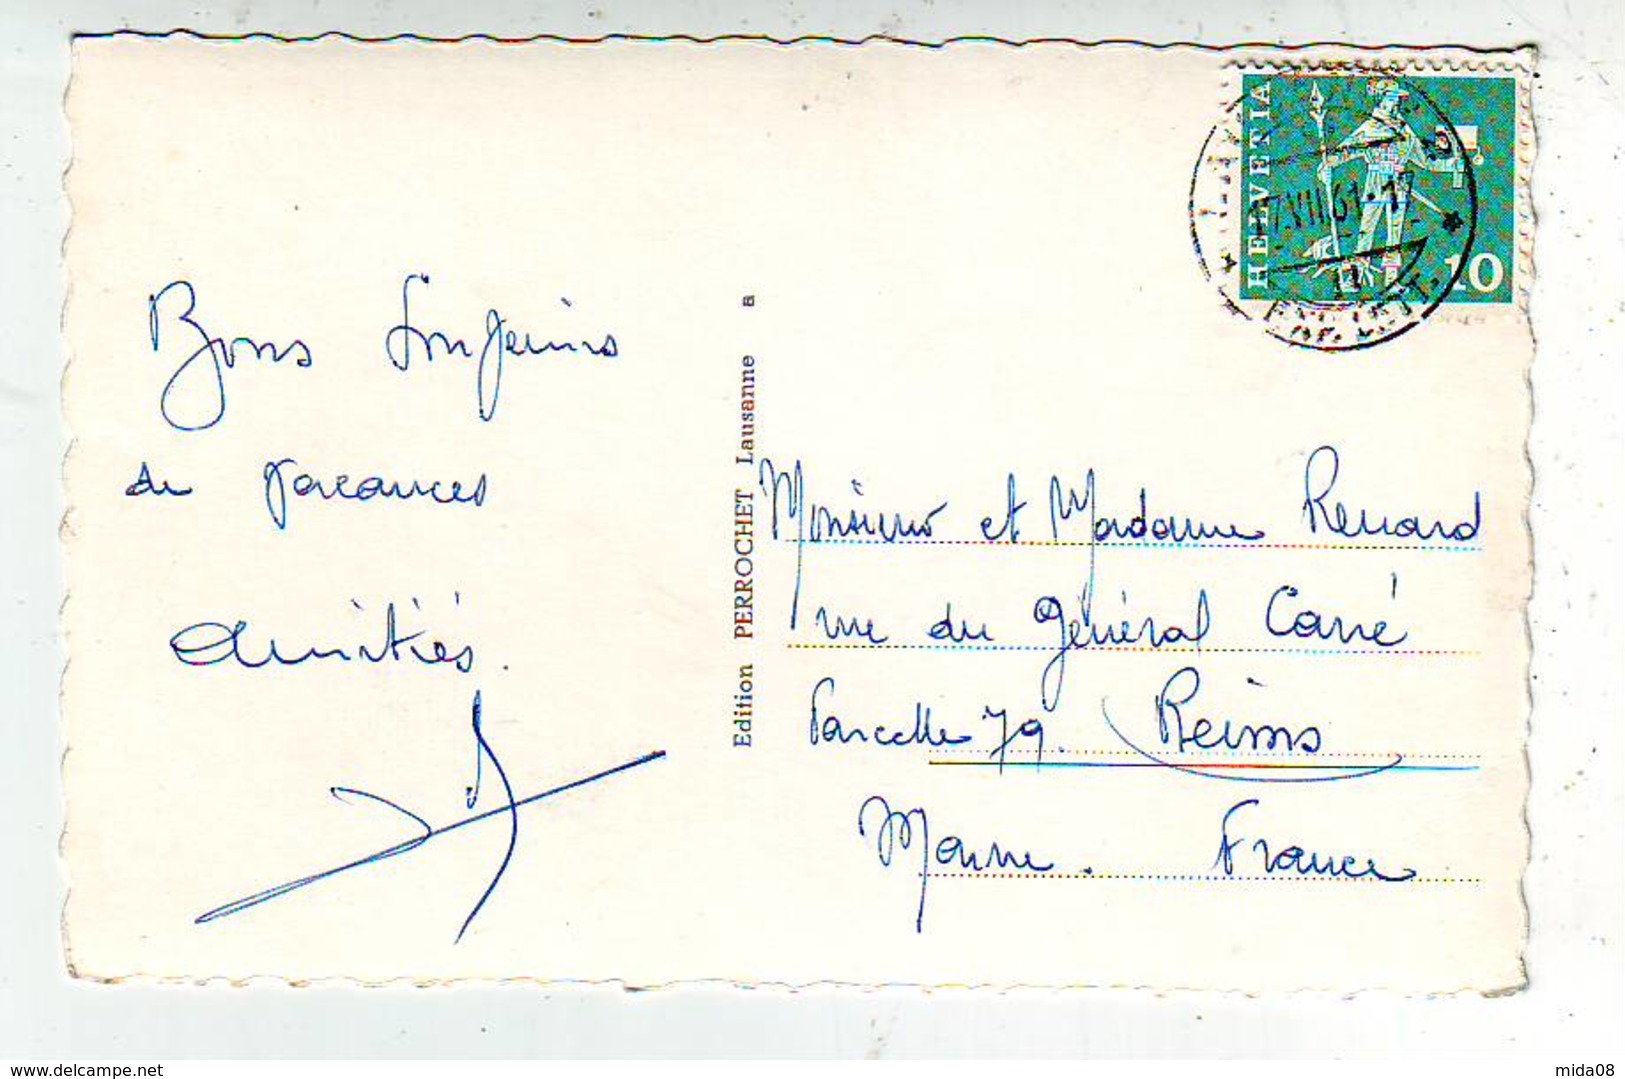 HELVETIA
17.VII.61-17
10
EXP. LETT.
Bons Souvenirs
de vacances
Amitiés.
Edition PERROCHET Lausanne a
Monsieur et Madame Renard
rue du Général Carré
Parcelle 79. Reims
Marne. France
www.delcampe.net
mida08